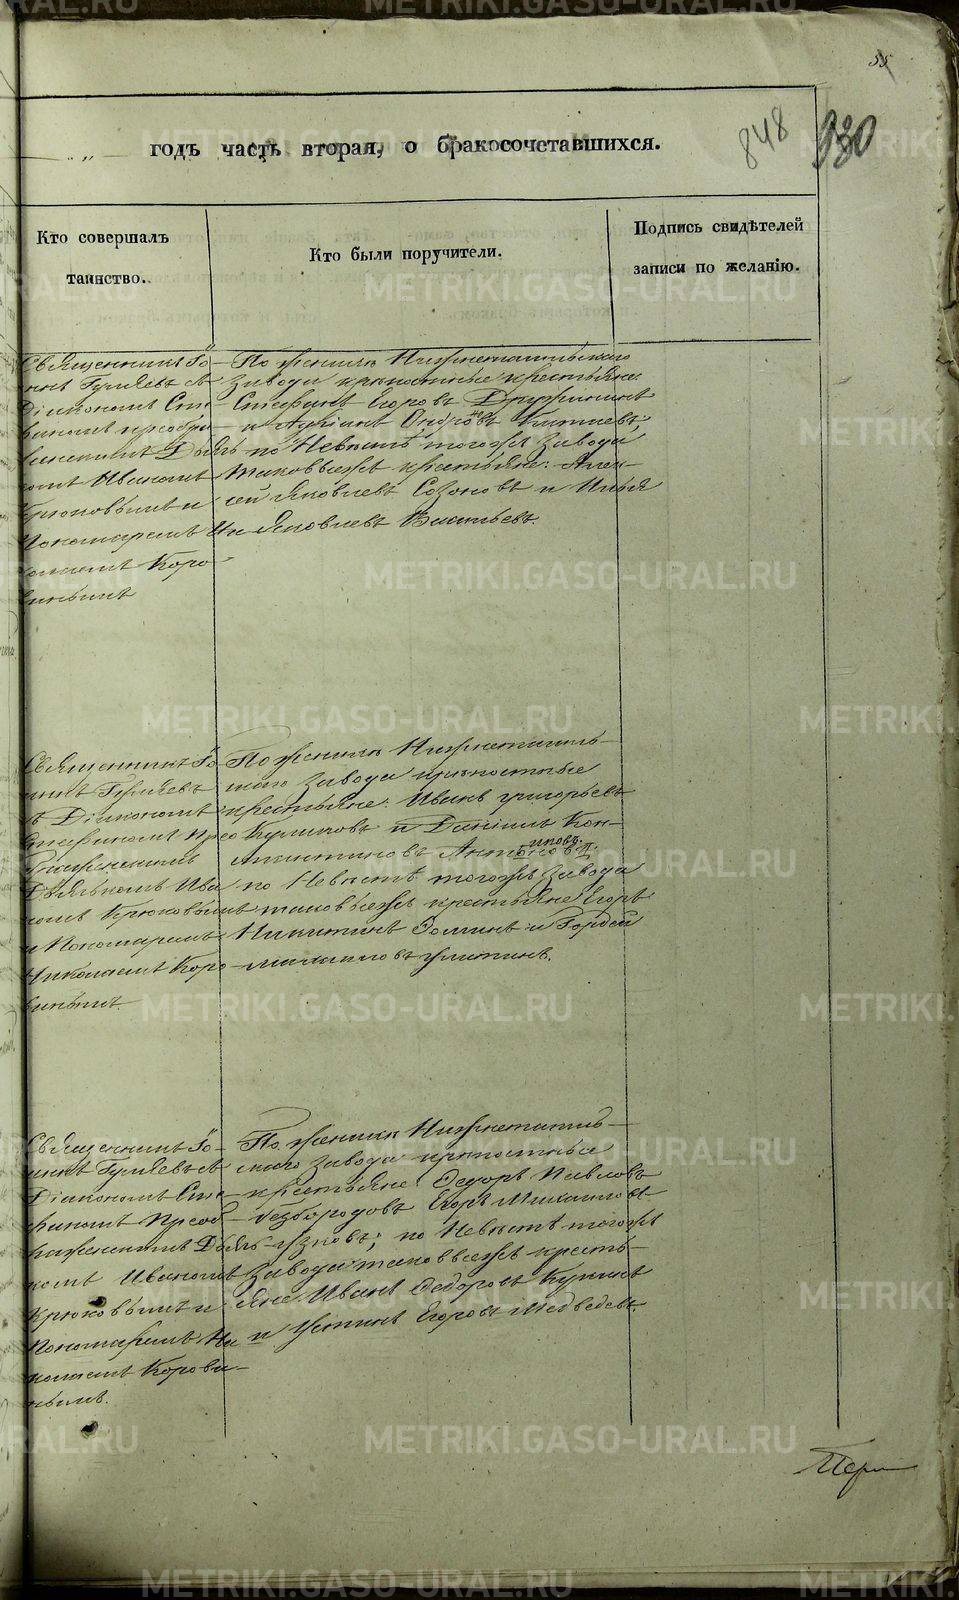 55
848
930
годъ часть вторая, о бракосочетавшихся.
Кто совершалъ
таинство.
Кто были поручители.
Подпись свидѣтелей
записи по желанію.
Священникъ Іо-
Гуряевъ съ
Діакономъ Сте-
фаномъ преобра-
Дьяч-
комъ Иваномъ
Крюковымъ и
Пономаремъ Ни-
колаемъ Коро-
винымъ
По женихѣ Нижнетагильскаго
завода крѣпостные крестьяне:
Стефанъ Егоровъ Дружининъ
и
по Невѣстѣ тогоже завода
таковыеже крестьяне: Алек-
сей Яковлевъ Созоновъ и Илья
Яковлевъ Васильевъ.
Священникъ Іо-
аннъ Гуряевъ
съ Діакономъ
Стефаномъ Прео-
браженскимъ
Дьячкомъ Ива-
номъ Крюковымъ
и Пономаремъ
Николаемъ Коро-
винымъ.
По женихѣ Нижнетагиль-
скаго завода крѣпостные
крестьяне: Иванъ Григорьевъ
Куликовъ и Даніилъ Кон-
стантиновъ
по Невѣстѣ тогоже завода
таковыеже крестьяне Егоръ
Никитинъ Фоминъ и Гордей
Михаиловъ Улитинъ.
Священникъ Іо-
аннъ Гуряевъ съ
Діакономъ Сте-
фаномъ Преоб-
раженскимъ Дьяч-
комъ Иваномъ
Крюковымъ и
Пономаремъ Ни-
колаемъ Корови-
нымъ.
По женихѣ Нижнетагиль-
скаго завода крѣпостные
крестьяне: Федоръ Павловъ
Безбородовъ Егоръ Михаиловъ
Узковъ; по Невѣстѣ тогоже
завода таковыеже кресть-
яне: Иванъ Федоровъ
и Устинъ Егоровъ Медведевъ.
METRIKI.GASO-URAL.RU